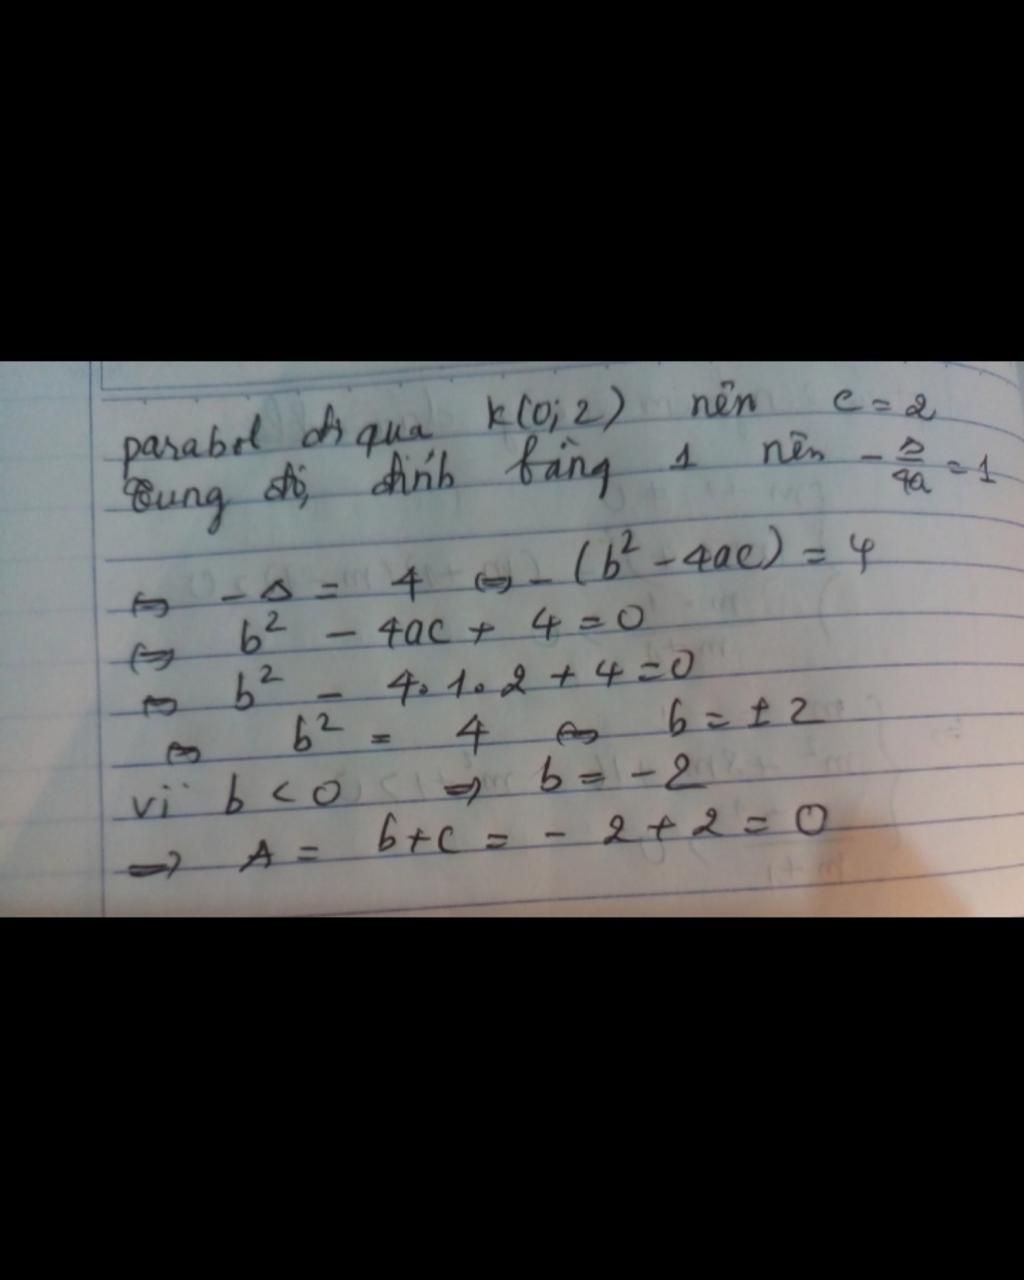 parabol đi qua K(0; 2) nên c = 2
Tung độ đỉnh bằng 1 nên -Δ/4a = 1
⇔ -Δ = 4 ⇔ -(b² - 4ac) = 4
⇔ b² - 4ac + 4 = 0
⇔ b² - 4.1.2 + 4 = 0
⇔ b² = 4 ⇔ b = ± 2
vì b < 0 ⇒ b = -2
⇒ A = b + c = - 2 + 2 = 0